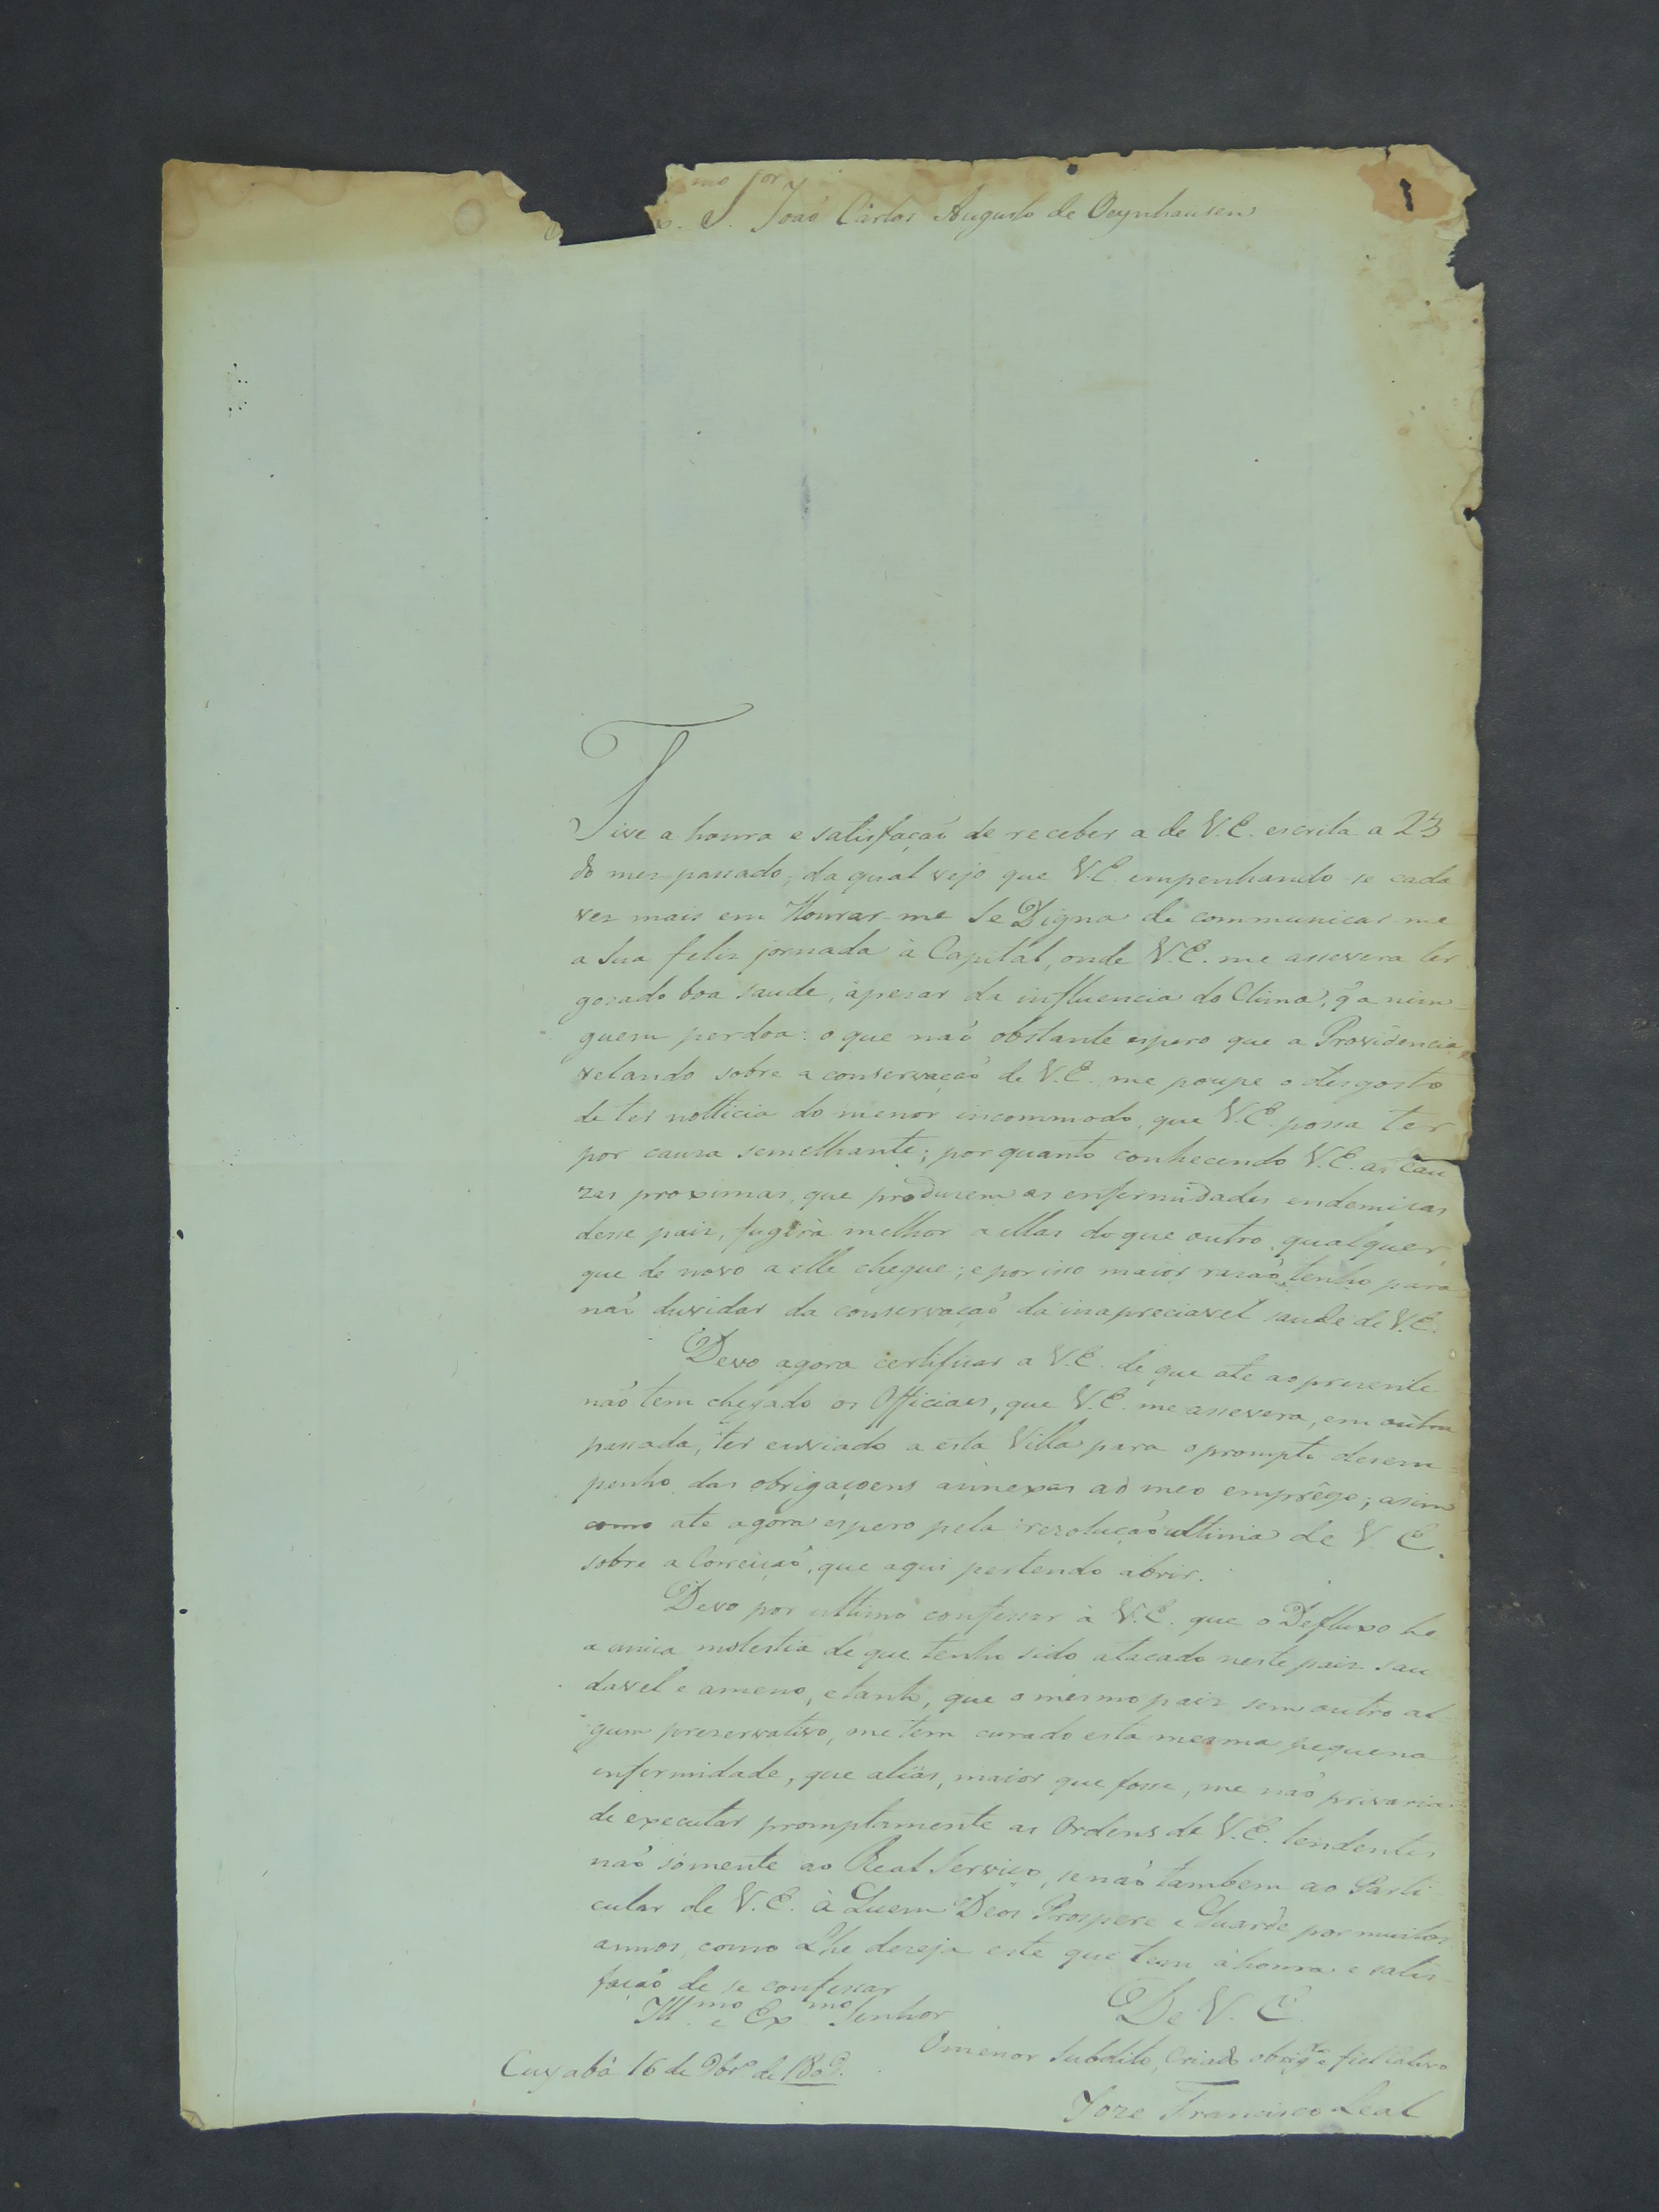 mo Sor
x. S. Joaõ Carlos Augusto de Oeynhausen
Tive a honra e satisfaçaõ de receber a de V. E. escrita a 23
do mez passado, da qual vejo que V. E. empenhando-se cada
vez mais em Honrar-me Se Digna de communicar-me
a Sua feliz jornada à Capital, onde V. E. me assevera ter
gozado boa saude, ápezar da influencia do Clima, q̃ a nin=
guem perdoa: o que naõ obstante espero que a Providencia,
velando sobre a conservaçaõ de V. E. me poupe o desgosto
de ter notticia do menor incommodo, que V. E. possa ter
por cauza semelhante; por quanto conhecendo V. E. as cau
zas proximas, que produzem as enfermidades endemicas
desse paiz, fugirà melhor a ellas do que outro qualquer,
que de novo a elle chegue; e por isso maior razaõ tenho para
naõ duvidar da conservaçaõ da inapreciavel saude de V. E.
Devo agora certificar a V. E. de que ate ao prezente
naõ tem chegado os Officiaes, que V. E. me assevera, em outra
passada, ter enviado a esta Villa para o prompto dezem=
penho das obrigaçoens annexas ao meo emprêgo; asim
como ate agora espero pela rezoluçaõ ultima de V. E.
sobre a Correiçaõ, que aqui pertendo abrir.
Devo por ultimo confessar à V. E. que o Defluxo he
a unica molestia de que tenho sido atacado neste paiz sau
davel e ameno, e tanto, que o mesmo paiz sem outro al-
gum prezervativo, me tem curado esta mesma pequena
enfermidade, que aliàs, maior que fosse, me naõ privaria
de executar promptamente as Ordens de V. E. tendentes
naõ sómente ao Real Serviço, senaõ tambem ao Parti
cular de V. E. à Quem Deos Prospere e Guarde por muitos
annos, como Lhe dezeja este que tem à honra e satis-
façaõ de se confessar
Illmo e Exmo Senhor
De V. E.
O menor Subdito, Criado obrigdo e fiel Cativo
Cuyabà 16 de 9bro de 1809.
Joze Francisco Leal